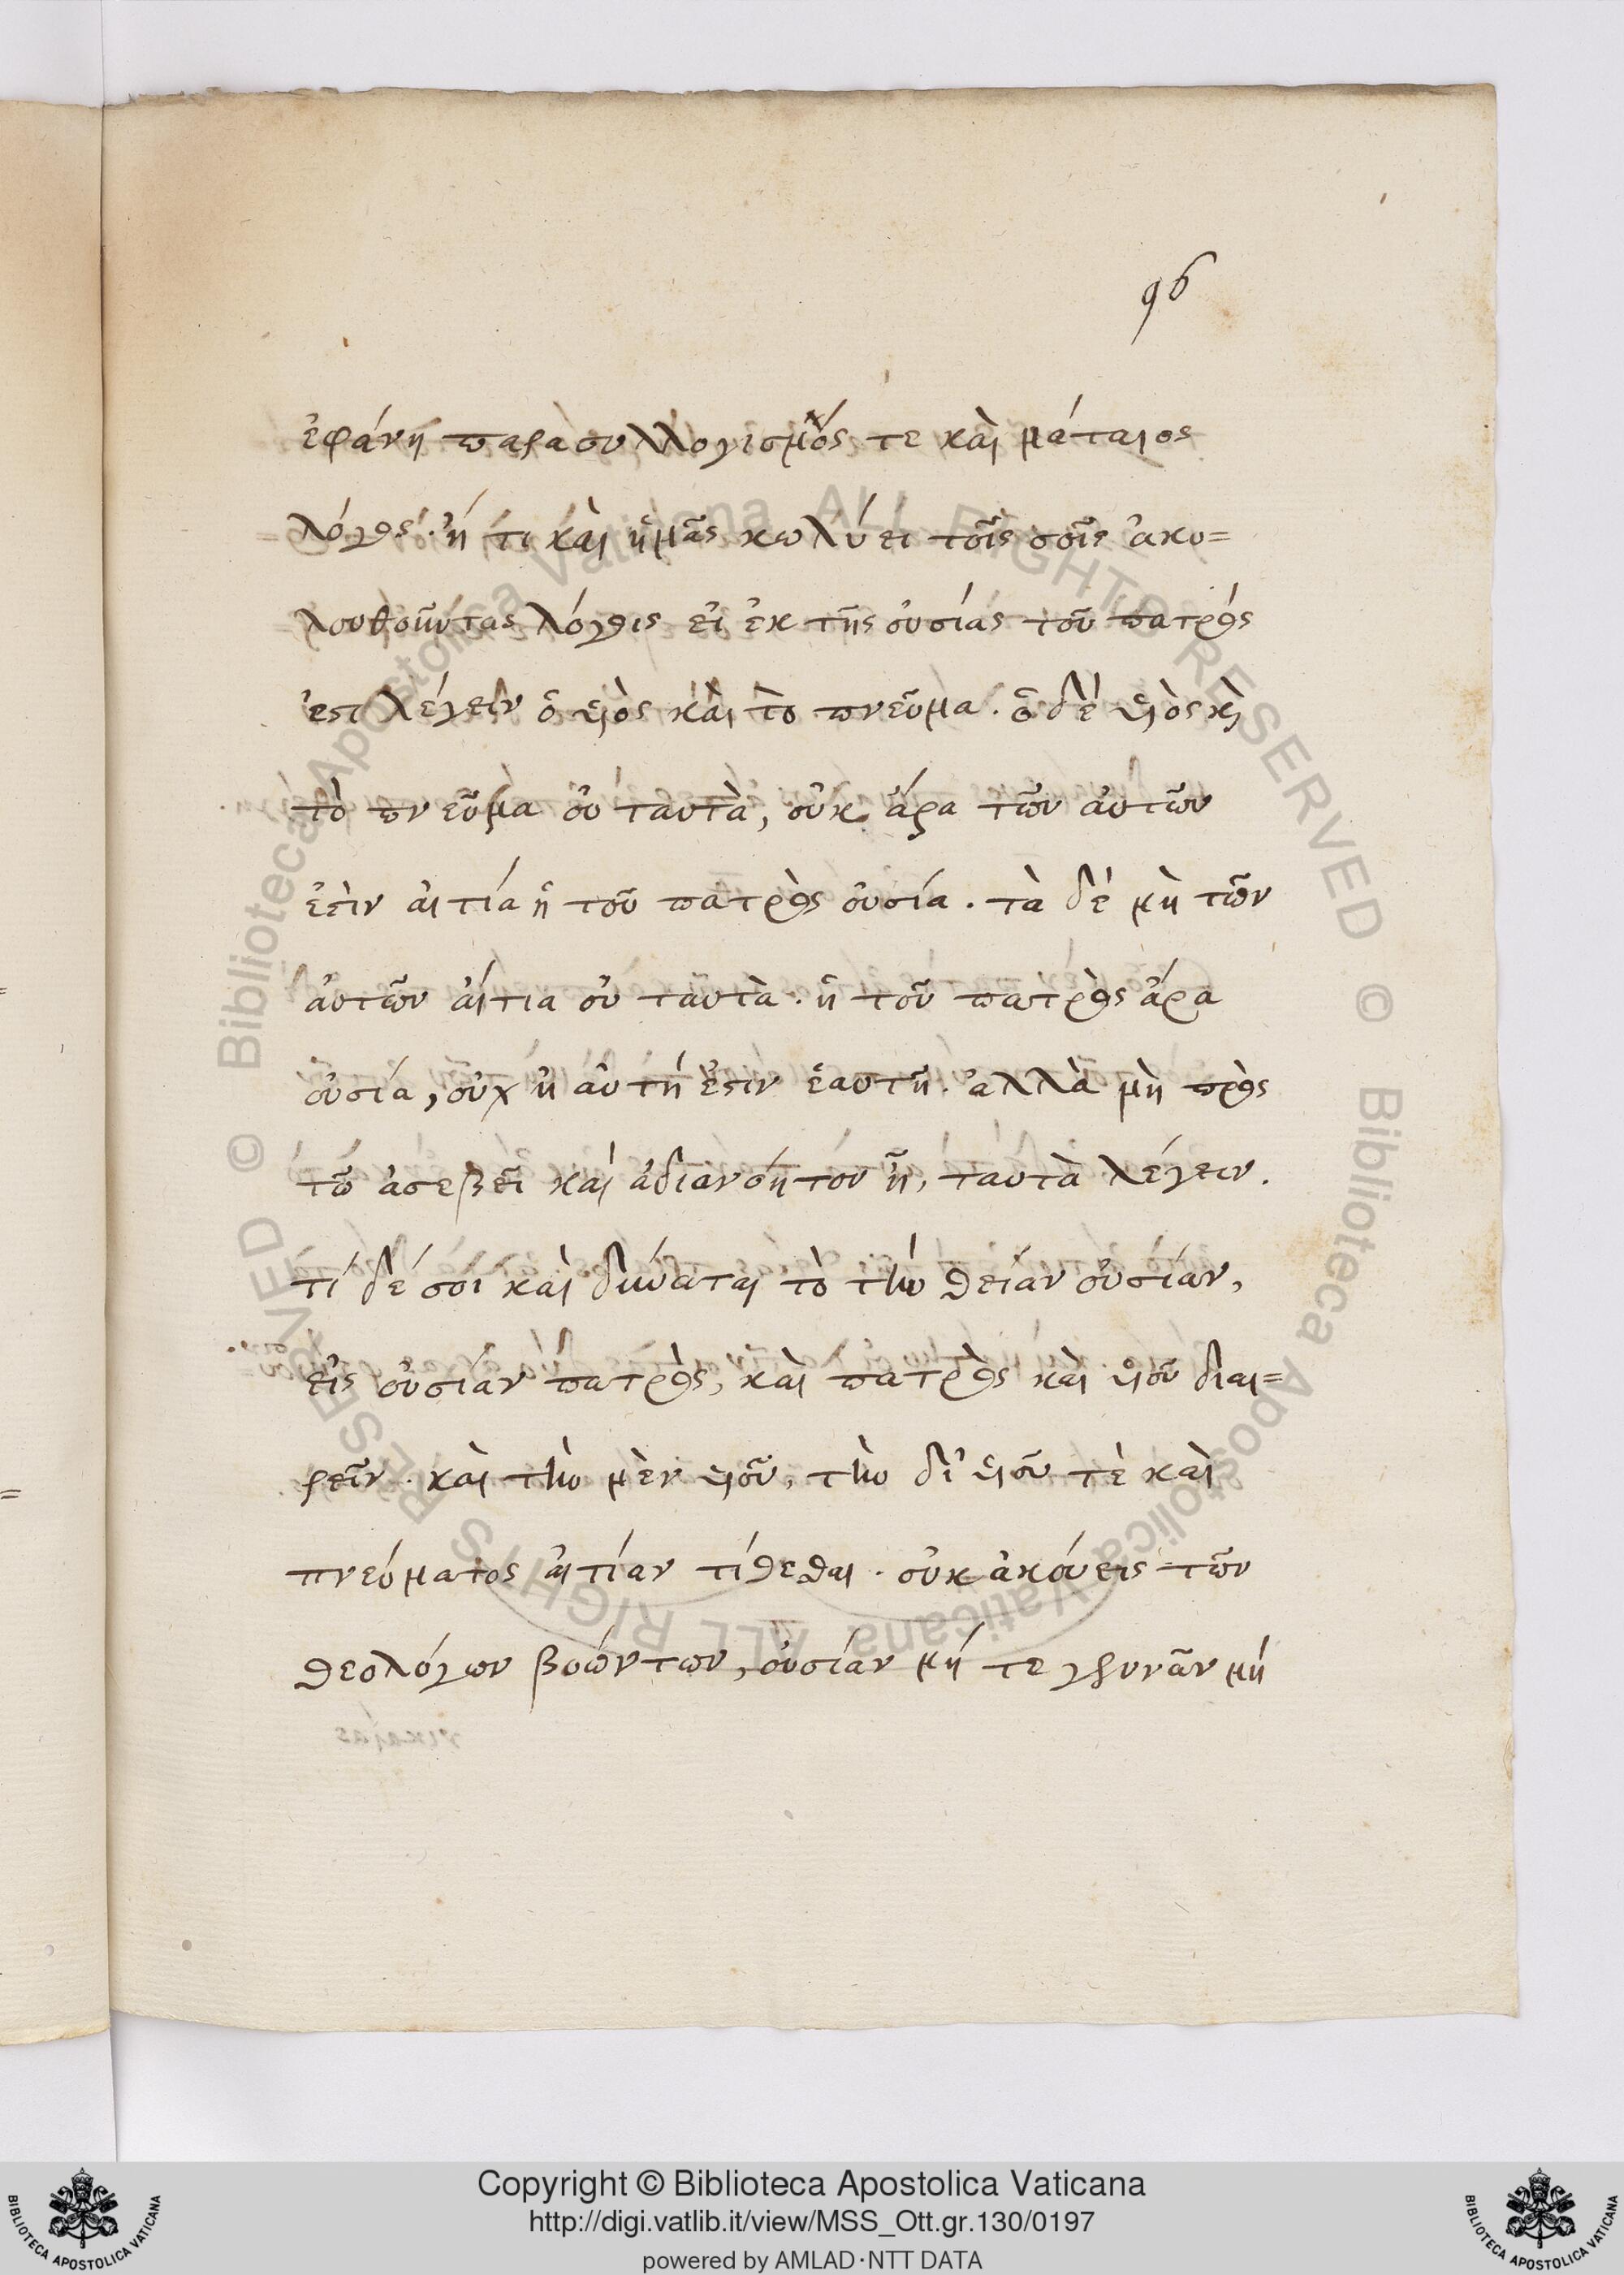 96
ἐφάνη παρασυλλογισμὸς τε καὶ μάταιος
λόγος. ἤ τι καὶ ἡμᾶς κωλύει τοῖς σοῖς ἀκο=
λουθοῦντας λόγοις εἰ ἐκ τῆς οὐσίας τοῦ πατρός
ἐστι λέγειν ὁ υἱὸς καὶ τὸ πνεῦμα. ὁ δὲ υἱὸς κὶ
τὸ πνεῦμα οὐ ταυτὰ, οὐκ ἄρα τῶν αὐτῶν
ἐστὶν αἰτία ἡ τοῦ πατρὸς οὐσία. τὰ δὲ μὴ τῶν
αὐτῶν αἴτια οὐ ταυτὰ. ἡ τοῦ πατρὸς ἄρα
οὐσία, οὐχ ἡ αὐτή ἐστιν ἑαυτῆ. ἀλλὰ μὴ πρὸς
τῶ ἀσεβεῖ καὶ ἀδιανόητον ἦ, ταυτὰ λέγειν.
τί δέ σοι καὶ δύναται τὸ τὴν θείαν οὐσίαν,
εἰς οὐσίαν πατρὸς, καὶ πατρὸς καὶ υἱοῦ διαι=
ρεῖν. καὶ τὴν μὲν υἱοῦ, τὴν δι' υἱοῦ τὲ καὶ
πνεύματος αἰτίαν τίθεσθαι. οὐκ ἀκούεις τῶν
θεολόγων βοώντων, οὐσίαν μή τε γεννᾶν μή
Copyright © Biblioteca Apostolica Vaticana
http://digi.vatlib.it/view/MSS_Ott.gr.130/0197
powered by AMLAD·NTT DATA